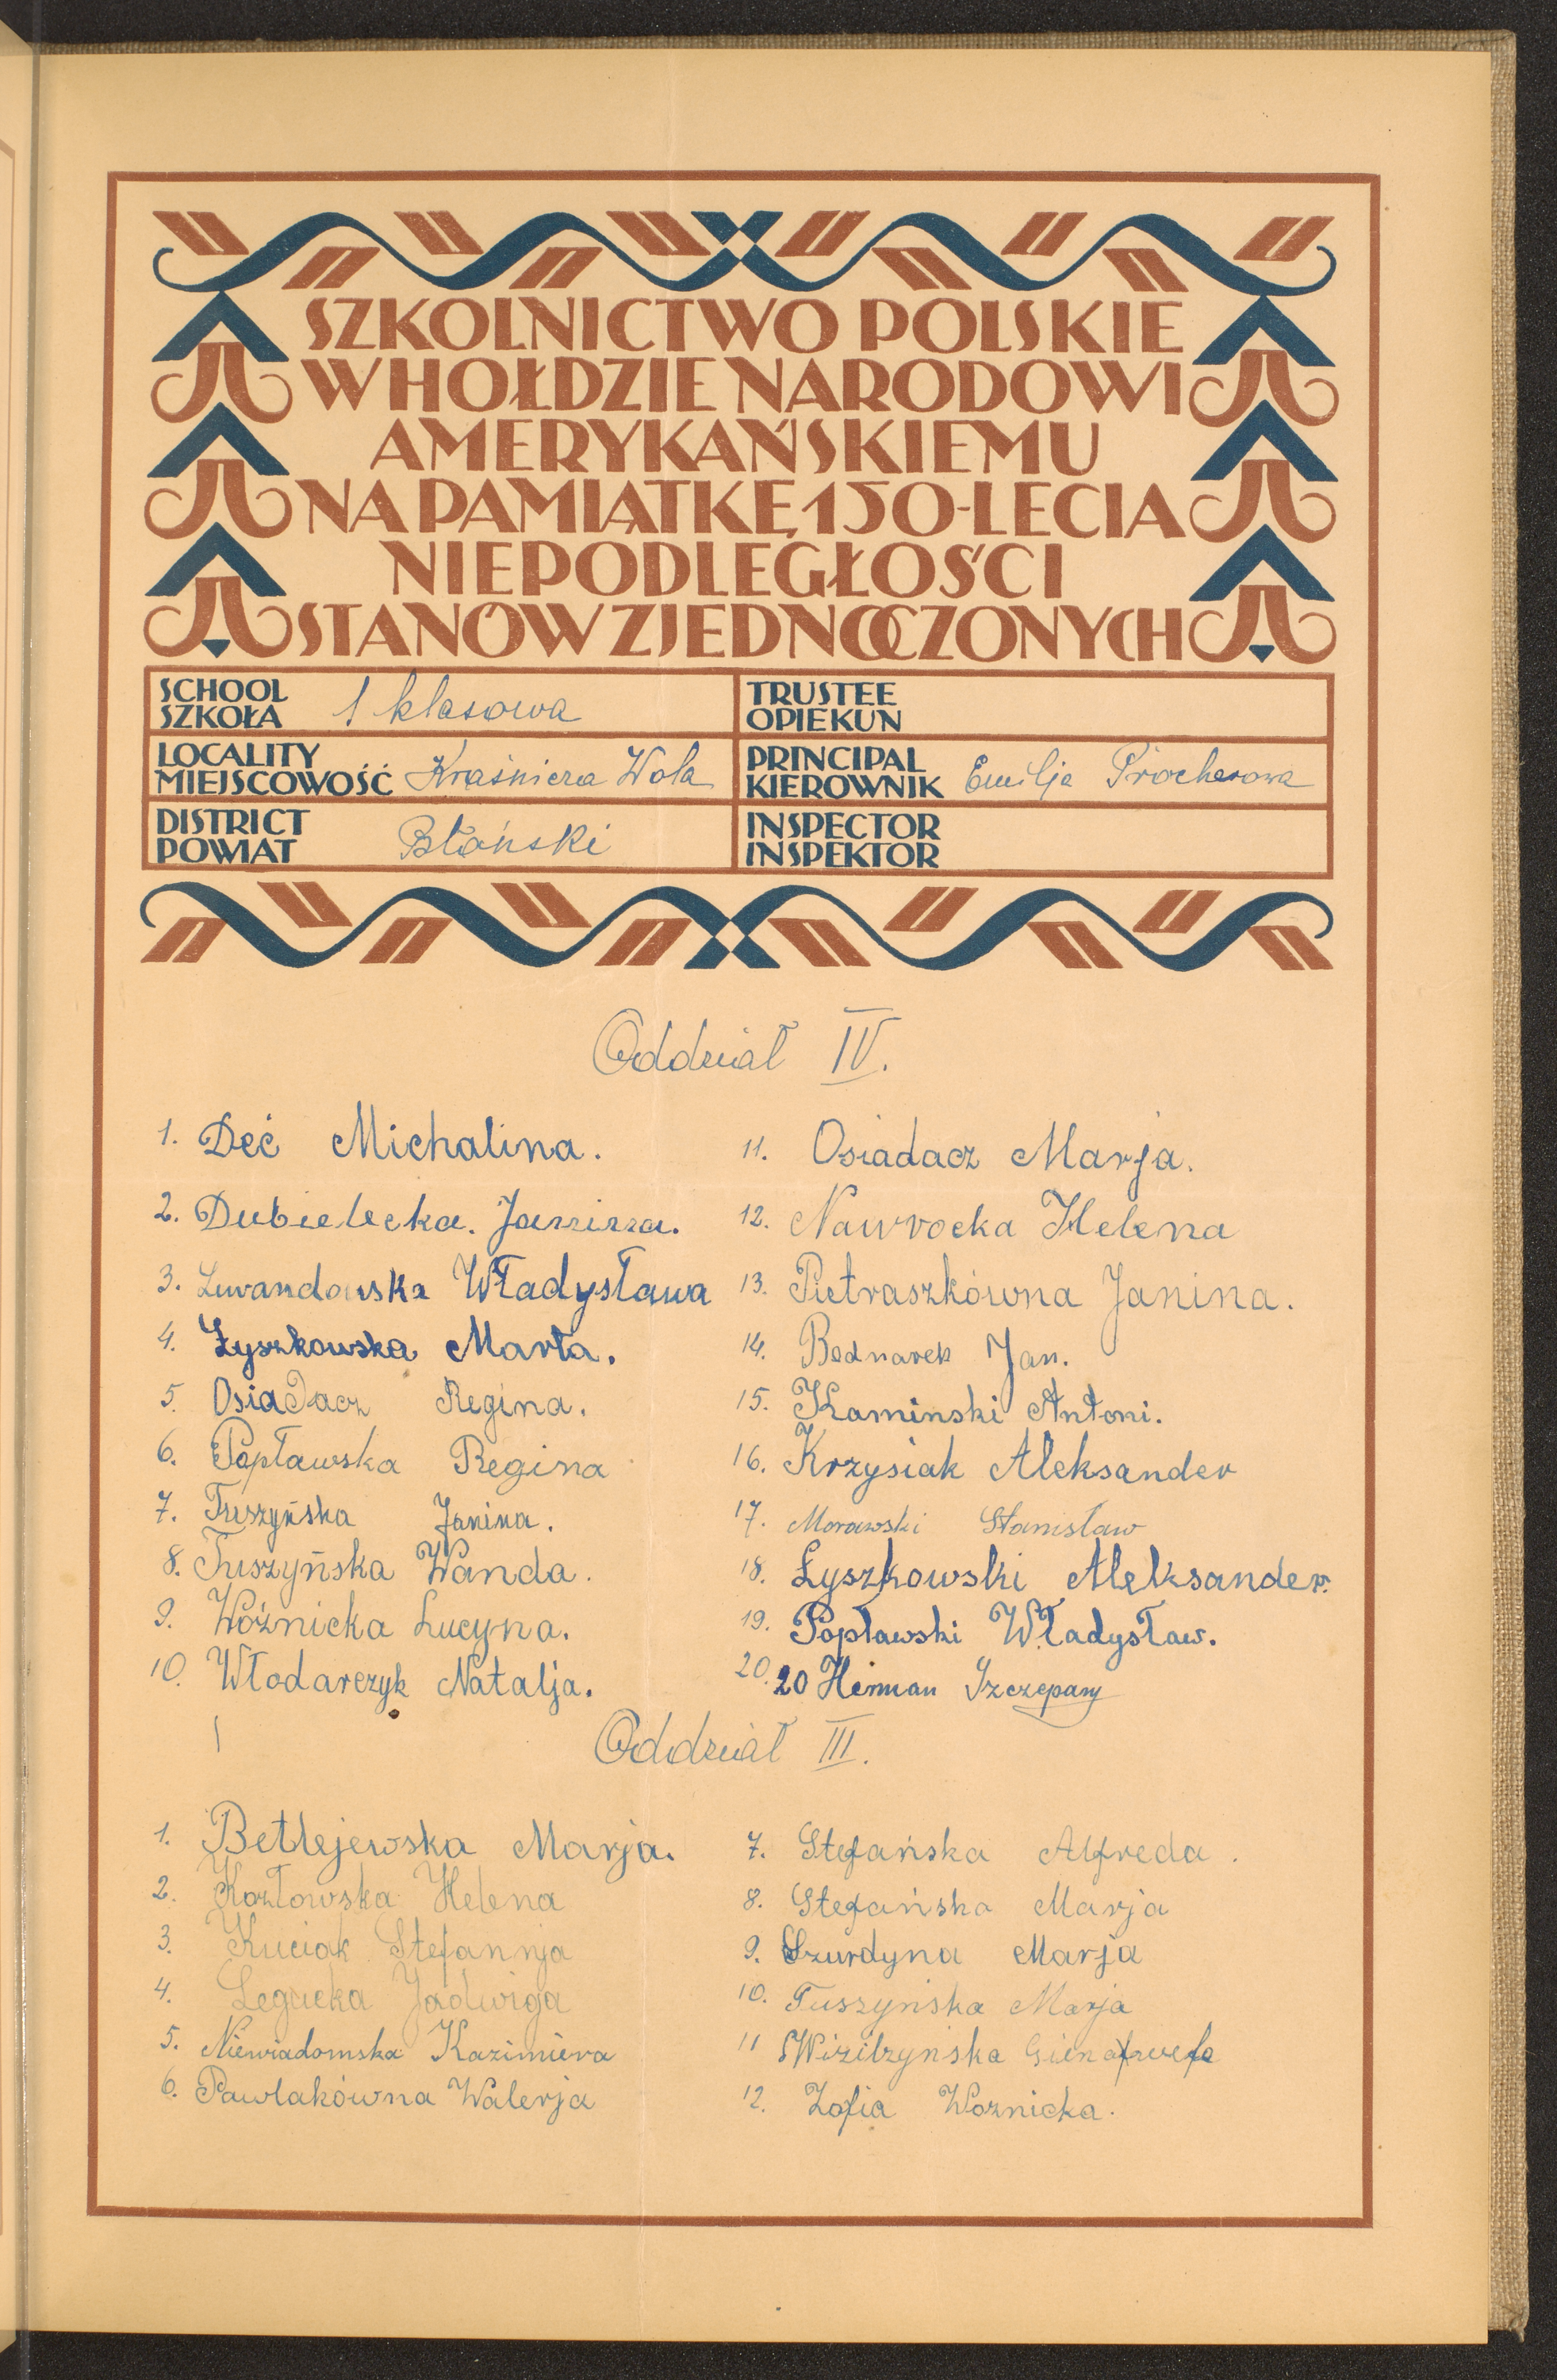 SZKOLNICTWO POLSKIE
W HOŁDZIE NARODOWI
AMERYKAŃSKIEMU
NA PAMIĄTKĘ 150-LECIA
NIEPODLEGŁOŚCI
STANÓW ZJEDNOCZONYCH
SCHOOL
SZKOŁA 1 klasowa
TRUSTEE
OPIEKUN
LOCALITY
MIEJSCOWOŚĆ Kraśnicza Wola
PRINCIPAL
KIEROWNIK Emilja Procherowa
DISTRICT
POWIAT Błoński
INSPECTOR
INSPEKTOR
Oddział IV.
1. Deć Michalina.
2. Dubielecka. Janina.
3. Lewandowska Władysława
4. Łyszkowska Marta.
5. Osiadacz Regina.
6. Popławska Regina
7. Tuszyńska Janina.
8. Tuszyńska Wanda.
9. Woźnicka Lucyna.
10. Włodarczyk Natalja.
11. Osiadacz Marja.
12. Nawrocka Helena
13. Pietraszkówna Janina.
14. Bednarek Jan.
15. Kaminski Antoni.
16. Krzysiak Aleksander
17. Morawski Stanisław
18. Łyszkowski Aleksander.
19. Popławski Władysław.
20. 20 Herman Szczepany
Oddział III.
1. Betlejewska Marja.
2. Kozłowska Helena
3. Kuciak Stefannja
4. Legucka Jadwiga
5. Niewiadomska Kazimiera
6. Pawlakówna Walerja
7. Stefańska Alfreda.
8. Stefańska Marja
9. Szurdyna Marja
10. Tuszyńska Marja
11
12. Zofia Woznicka.